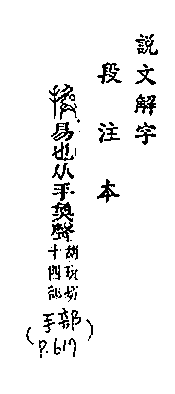 說文解字
段注本
換易也从手奐聲
胡玩切
十四部
(手部
P.617)